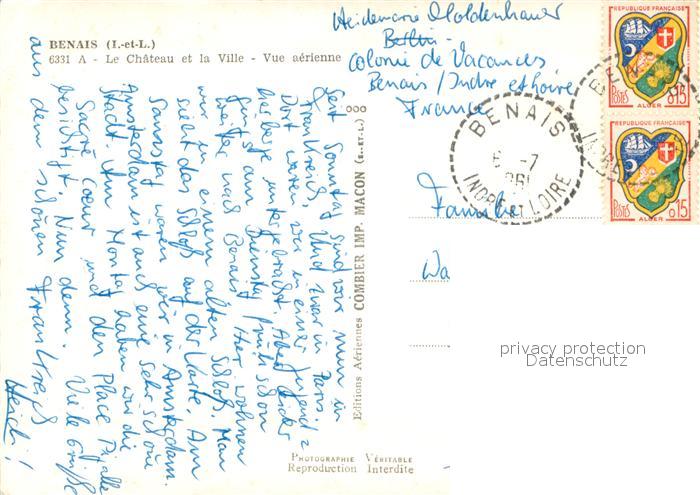 BENAIS (I.-et-L.)
6331 A - Le Château et la Ville - Vue aérienne
Heidemarie Moldenhauer
Berlin -
Colonie de Vacances
Benais/Indre et Loire
France
RÉPUBLIQUE FRANÇAISE
POSTES 0,15
ALGER
RÉPUBLIQUE FRANÇAISE
POSTES 0,15
ALGER
BENAIS
6 -7
1961
INDRE ET LOIRE
Familie
Wa
Seit Sonntag sind wir nun in
Frankreich. Und zwar in Paris.
Dort waren wir in einer Jugend=
herberge untergebracht. Aber leider
ging's am Dienstag früh schon
weiter nach Benais. Hier wohnen
wir in einem alten Schloß. Man
sieht das Schloß auf der Karte. Am
Sonnabend waren wir in Amsterdam.
Amsterdam ist auch eine sehr schöne
Stadt. Am Montag haben wir die
Sacré Coeur und den Place Pigalle
besichtigt. Nun denn. Viele Grüße
aus dem schönen Frankreich
Heidi!
Editions Aériennes COMBIER IMP. MACON (S.-ET-L.)
PHOTOGRAPHIE VÉRITABLE
Reproduction Interdite
privacy protection
Datenschutz